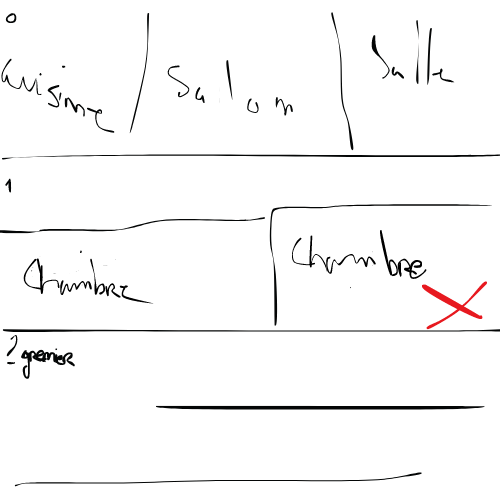 0
Cuisine Salon Salle
1
Chambre Chambre
2 grenier